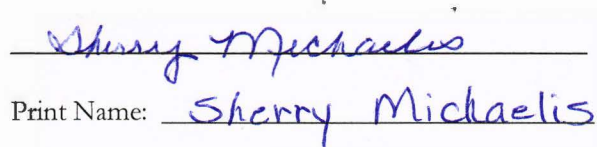 Sherry Michaelis
Print Name: Sherry Michaelis